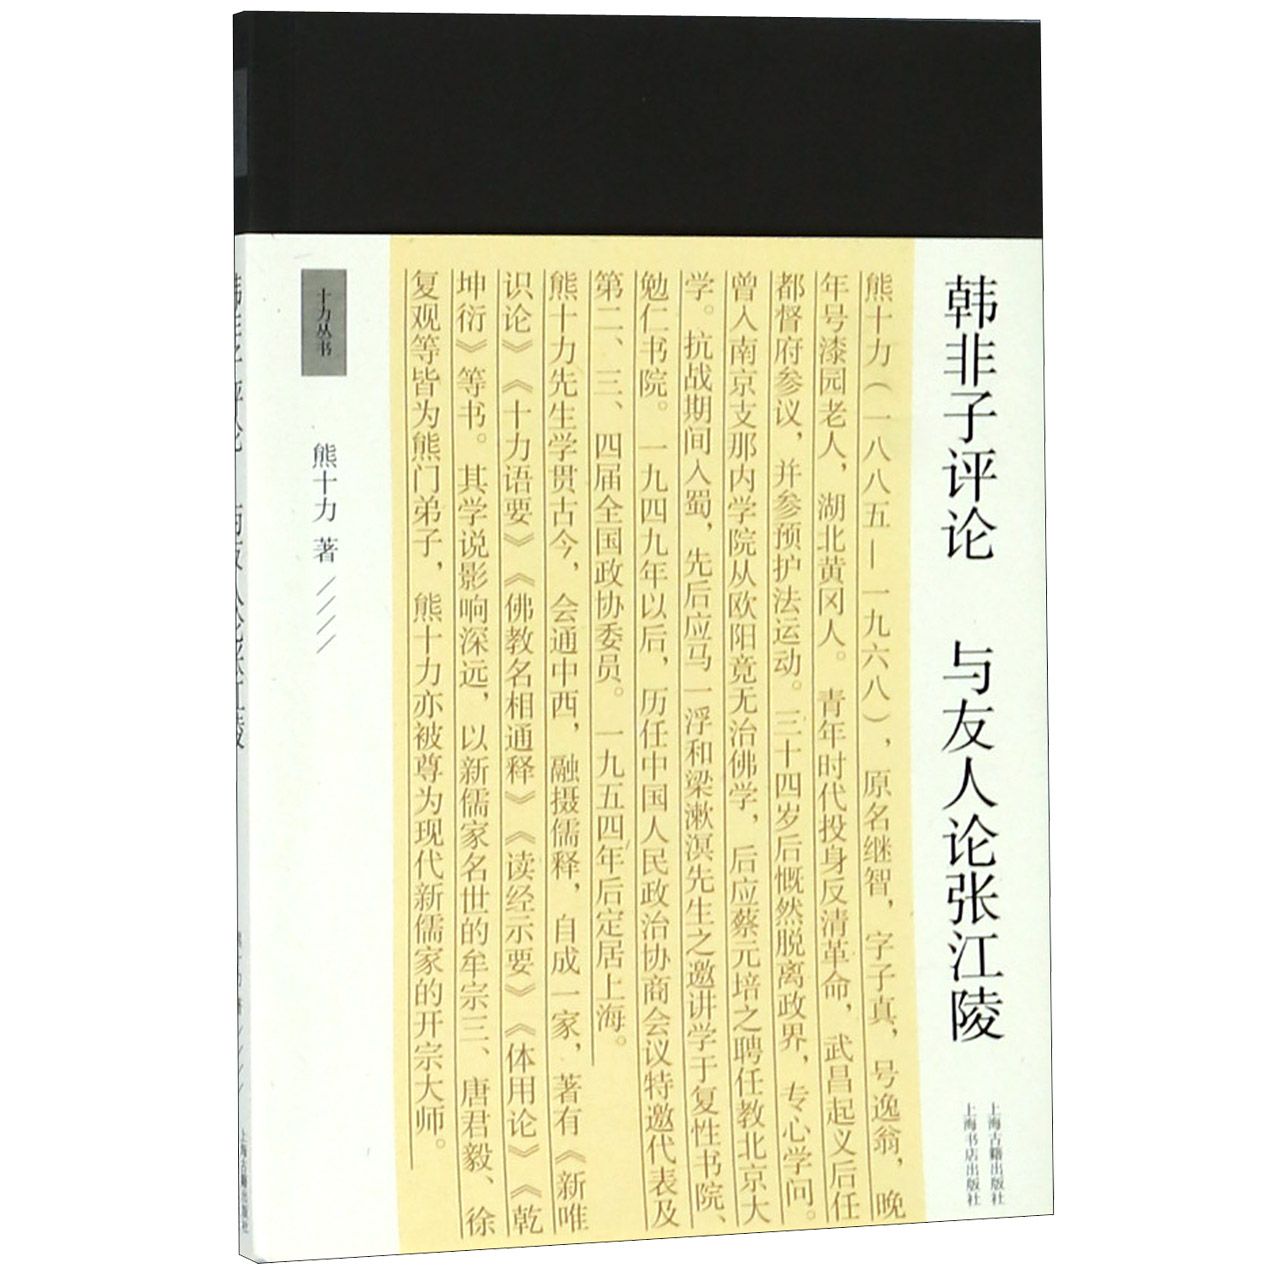 韩非子评论 与友人论张江陵
上海古籍出版社
上海书店出版社
熊十力（一八八五—一九六八），原名继智，字子真，号逸翁，晚
年号漆园老人，湖北黄冈人。青年时代投身反清革命，武昌起义后任
都督府参议，并参预护法运动。三十四岁后慨然脱离政界，专心学问。
曾入南京支那内学院从欧阳竟无治佛学，后应蔡元培之聘任教北京大
学。抗战期间入蜀，先后应马一浮和梁漱溟先生之邀讲学于复性书院、
勉仁书院。一九四九年以后，历任中国人民政治协商会议特邀代表及
第二、三、四届全国政协委员。一九五四年后定居上海。
熊十力先生学贯古今，会通中西，融摄儒释，自成一家，著有《新唯
识论》《十力语要》《佛教名相通释》《读经示要》《体用论》《乾
坤衍》等书。其学说影响深远，以新儒家名世的牟宗三、唐君毅、徐
复观等皆为熊门弟子，熊十力亦被尊为现代新儒家的开宗大师。
十力丛书
熊十力 著
韩非子评论 与友人论张江陵
熊十力 著
上海古籍出版社